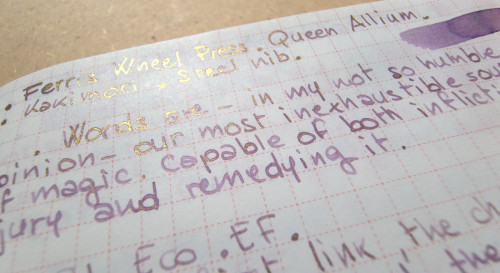 • Ferris Wheel Press. Queen Allium.
• Kakimori • Steel nib.
. Words are - in my not so humble
opinion - our most inexhaustible
of magic. Capable of both
and remedying it.
Eco . EF .
link, the